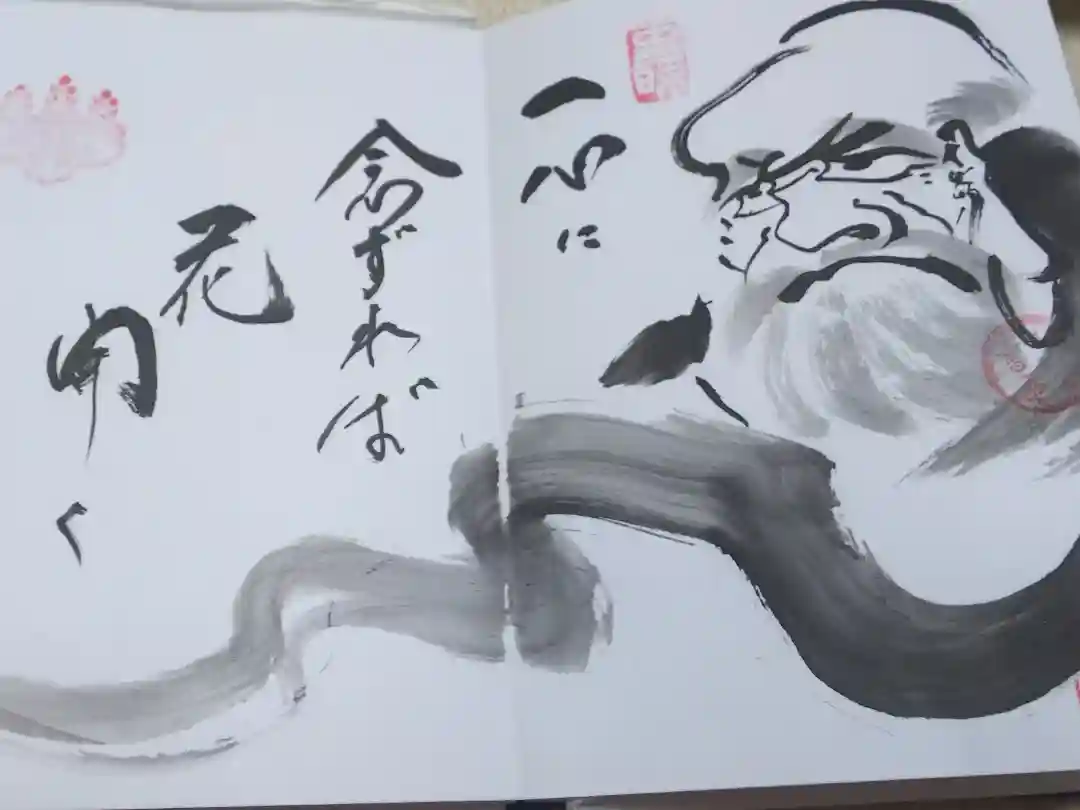 一心に
念ずれば
花
開く